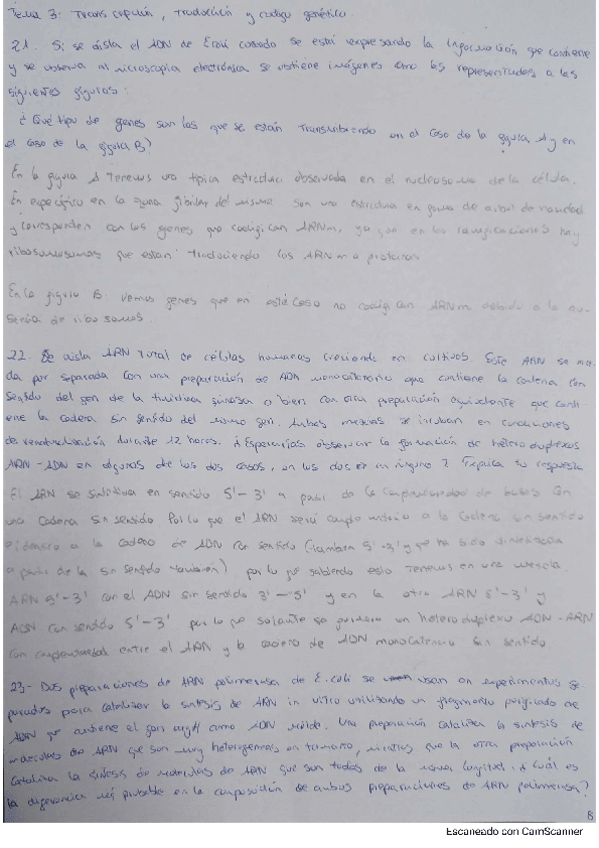 Tema 3: Transcripción, traducción y código genético.
21. Si se aisla el ADN de E.coli cuando se está expresando la información que contiene
y se observa al microscopio electrónico se obtiene imágenes como las representadas a las
siguientes figuras:
¿Qué tipo de genes son los que se están transcribiendo en el caso de la figura A y en
el caso de la figura B?
En la figura A tenemos una típica estructura observada en el de la célula.
En específico en la zona fibrilar del mismo son una estructura en forma de arbol de navidad
y corresponden con los genes que codifican ARNm, ya que en las ramificaciones hay
que estan traduciendo los ARNm a proteinas
En la figura B: vemos genes que en este caso no codifican ARNm debido a la au-
sencia de ribosomas.
22. Se aisla ARN total de células humanas creciendo en cultivos. Este ARN se mez-
cla por separado con una preparación de ADN monocatenario que contiene la cadena con
sentido del gen de la timidina quinasa o bien con otra preparación equivalente que conti-
ene la cadena sin sentido del mismo gen. Ambas mezclas se incuban en condiciones
de renaturalización durante 12 horas. ¿Esperarías observar la formación de heteroduplexos
ARN-ADN en algunos de los dos casos, en los dos o en ninguno? Explica tu respuesta
El ARN se sintetiza en sentido 5'-3' a partir de la complementariedad de bases con
una cadena sin sentido Por lo que el ARN será complementario a la cadena sin sentido
e idéntico a la cadena de ADN con sentido (tambien 5'-3' y que ha sido sintetizada
a partir de la sin sentido tambien) por lo que sabiendo esto tenemos en una mezcla
ARN 5'-3' con el ADN sin sentido 3'-5' y en la otra ARN 5'-3' y
ADN con sentido 5'-3' por lo que solante se formara un heteroduplexo ADN-ARN
con entre el ARN y la cadena de ADN monocatenario sin sentido
23- Dos preparaciones de ARN polimerasa de E.coli se usan en experimentos se-
parados para catalizar la sintesis de ARN in vitro utilizando un fragmento purificado de
ADN que contiene el gen argH como ADN molde. Una preparación cataliza la sintesis de
moleculas de ARN que son muy heterogeneas en tamaño, mientras que la otra preparación
cataliza la síntesis de moléculas de ARN que son todas de la misma longitud. ¿Cuál es
la diferencia más probable en la composición de ambas preparaciones de ARN polimerasa?
8
Escaneado con CamScanner